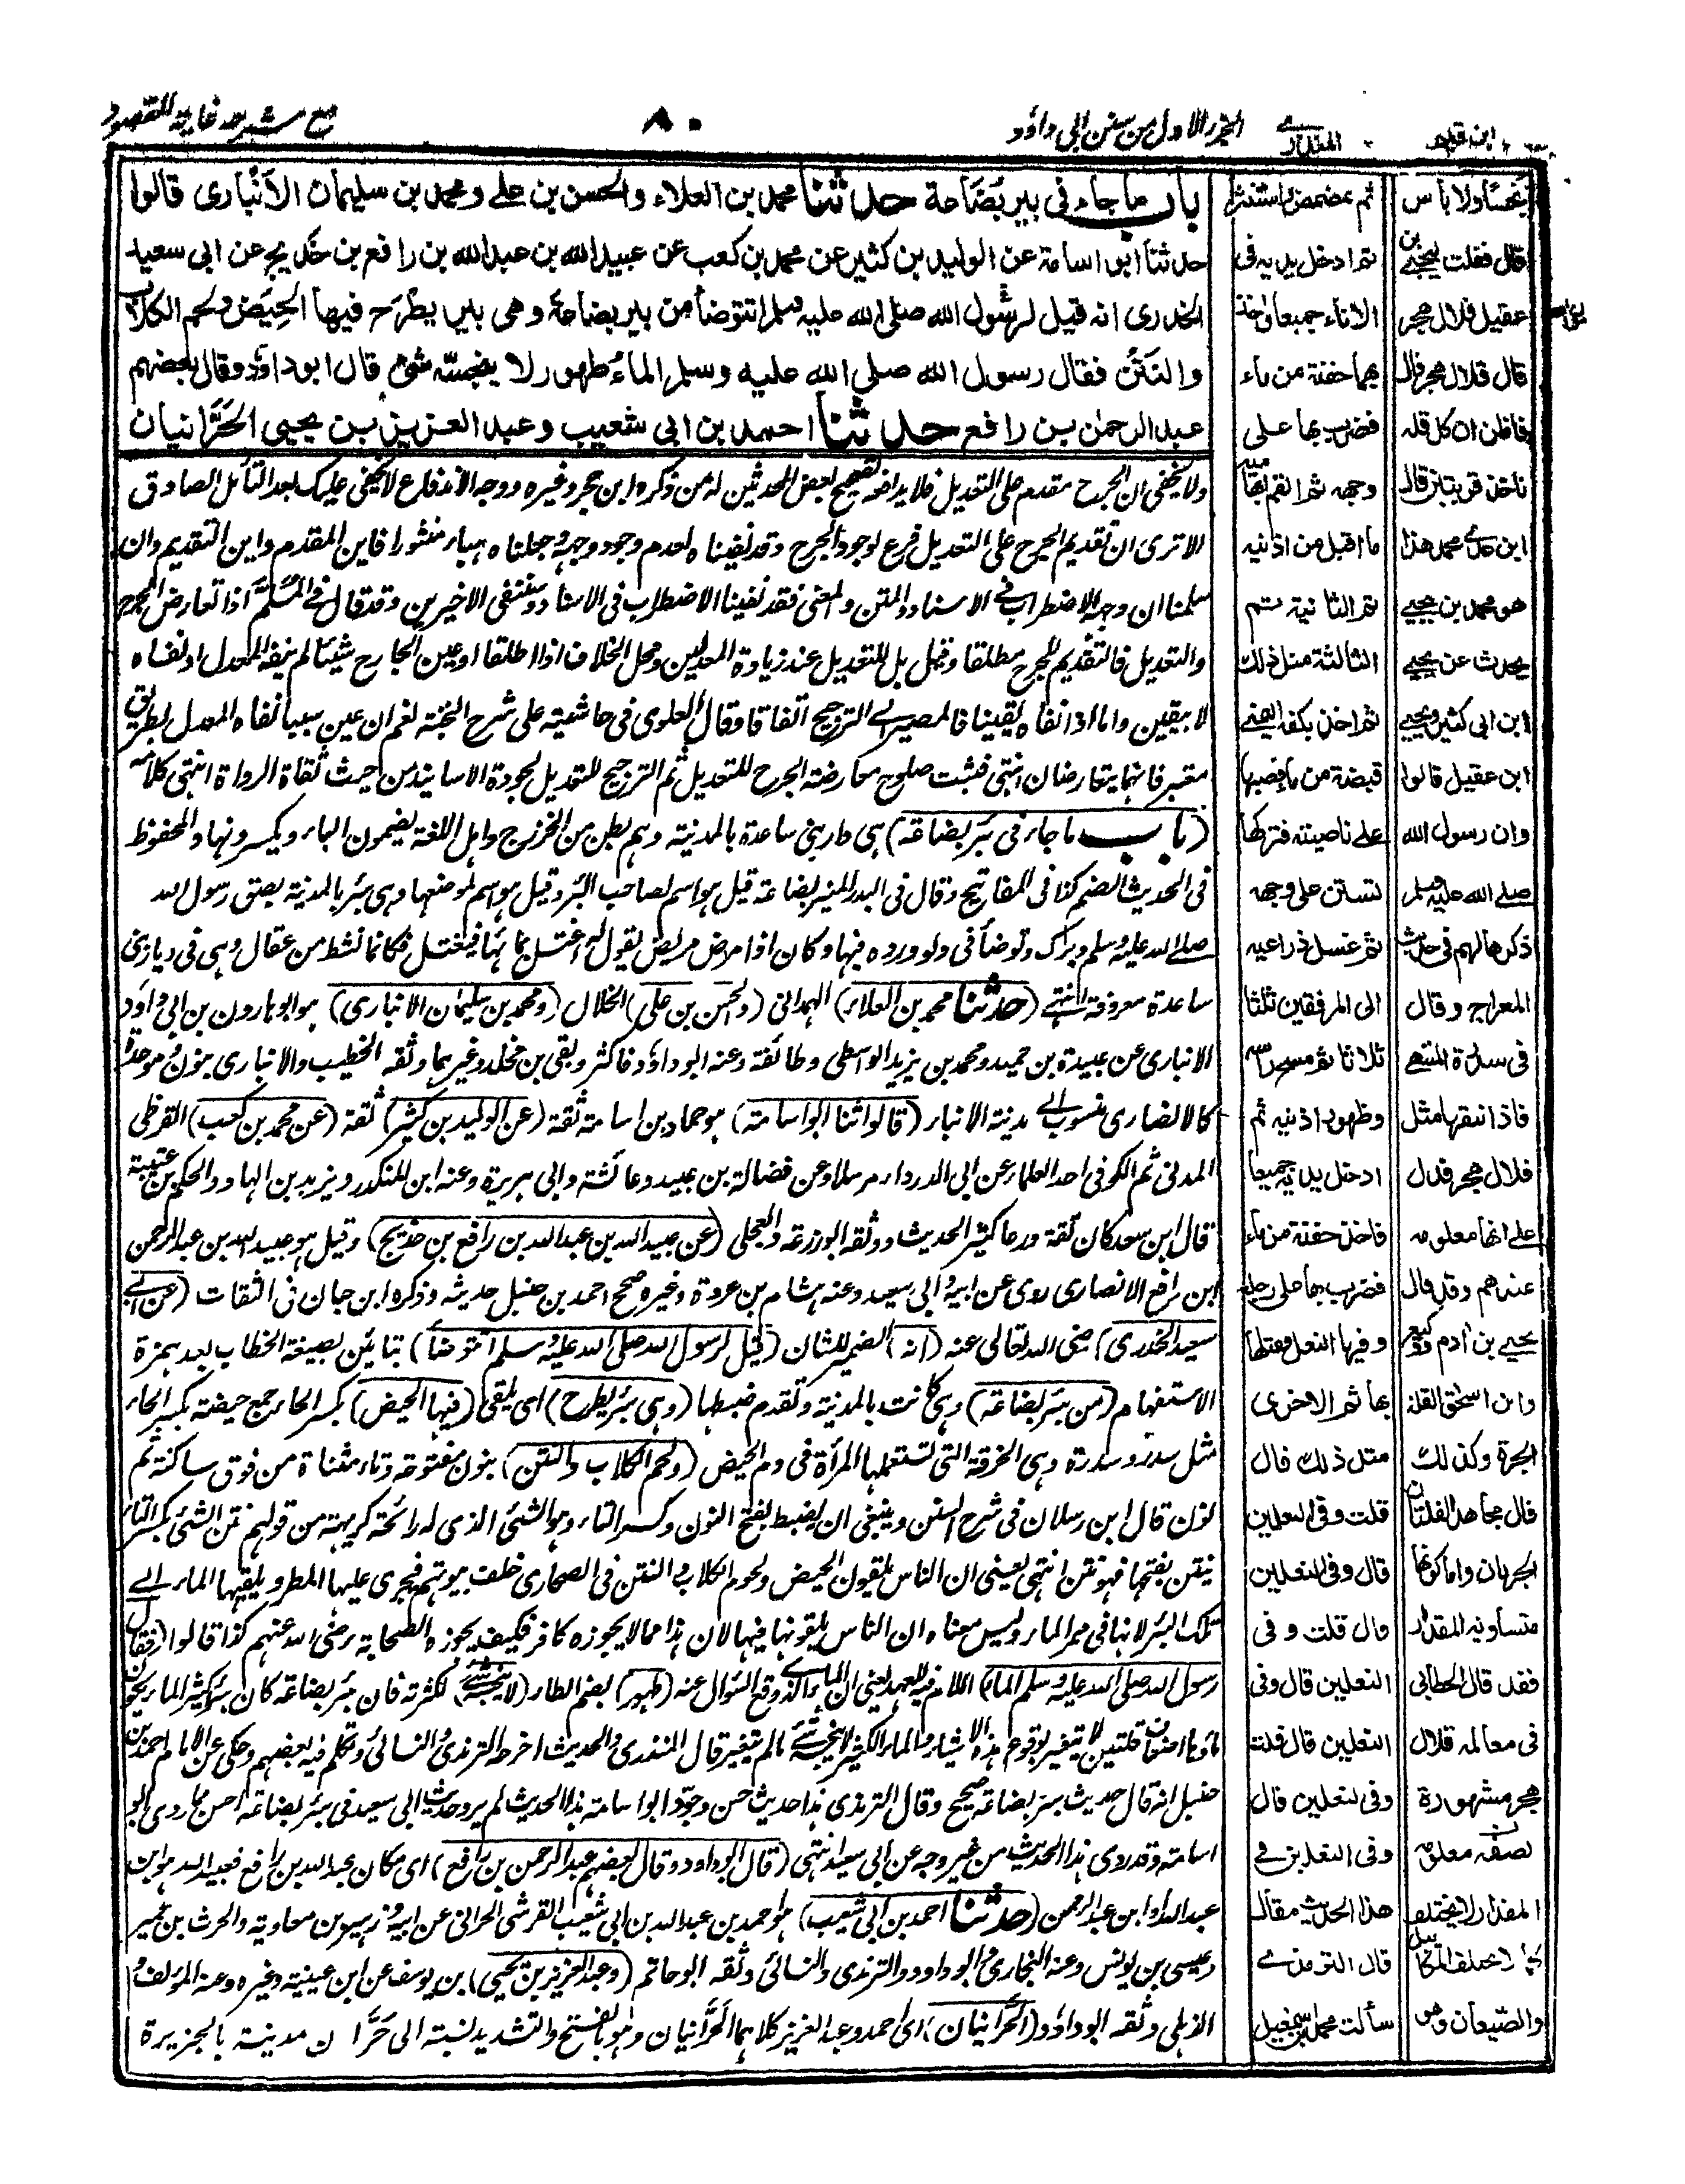 الجزء الاول من سنن ابى داؤد
٨٠
مع شرحه غاية المقصود
باب ما جاء فى بير بضاعة حدثنا محمد بن العلاء والحسن بن على ومحمد بن سليمان الانبارى قالوا
حدثنا ابو اسامة عن الوليد بن كثير عن محمد بن كعب عن عبيد الله بن عبد الله بن رافع بن خديج عن ابى سعيد
الخدرى انه قيل لرسول الله صلى الله عليه وسلم انتوضأ من بير بضاعة وهى بير يطرح فيها الحيض ولحم الكلاب
والنتن فقال رسول الله صلى الله عليه وسلم الماء طهور لا ينجسه شئ قال ابو داؤد وقال بعضهم
عبد الرحمن بن رافع حدثنا احمد بن ابى شعيب وعبد العزيز بن يحيى الحرانيان
ولا يخفى ان الجرح مقدم على التعديل فلا يدافعه تصحيح بعض المحدثين له ممن ذكره ابن حجر وغيره ووجه الاندفاع لا يخفى عليك بعد التأمل الصادق
الا ترى ان تقديم الجرح على التعديل فرع لوجود الجرح وقد نفيناه لعدم وجود وجهه وجعلناه هباء منثورا فاين المقدم واين التقديم وان
سلمنا ان وجه الاضطراب فى الاسناد والمتن والمعنى فقد نفينا الاضطراب فى الاسناد وسننفى الاخيرين وقد قال فى المسلم اذا تعارض الجرح
والتعديل فالتقديم للجرح مطلقا وقيل بل للتعديل عند زيادة المعدلين ومحل الخلاف اذا اطلقا او عين الجارح شيئا لم ينفه المعدل او نفاه
لا بيقين واما اذا نفاه يقينا فالمصير الى الترجيح اتفاقا وقال العلوى فى حاشيته على شرح النخبة نعم ان عين سببا نفاه المعدل بطريق
معتبر فانهما يتعارضان انتهى فثبت صلوح معارضة الجرح للتعديل ثم الترجيح للتعديل لجودة الاسانيد من حيث ثقاة الرواة انتهى كلامه
(باب ما جاء فى بئر بضاعة) هى دار بنى ساعدة بالمدينة وهم بطن من الخزرج واهل اللغة يضمون الباء ويكسرونها والمحفوظ
فى الحديث الضم كذا فى المفاتيح وقال فى البدر المنير بضاعة قيل هو اسم لصاحب البئر وقيل هو اسم لموضعها وهى بئر بالمدينة بصق رسول الله
صلى الله عليه وسلم وبرك وتوضأ فى دلو ورده فيها وكان اذا مرض مريض يقول له اغتسل بمائها فيغتسل فكانما نشط من عقال وهى فى ديار بنى
ساعدة معروفة انتهى (حدثنا محمد بن العلاء) الهمدانى (والحسن بن على) الخلال (ومحمد بن سليمان الانبارى) هو ابو هارون بن ابى داؤد
الانبارى عن عبيدة بن حميد ومحمد بن يزيد الواسطى وطائفة وعنه ابو داؤد فاكثر وبقى بن مخلد وغيرهما وثقه الخطيب والانبارى بنون موحدة
كالانصارى منسوب الى مدينة الانبار (قالوا ثنا ابو اسامة) هو حماد بن اسامة ثقة (عن الوليد بن كثير) ثقة (عن محمد بن كعب) القرظى
المدنى ثم الكوفى احد العلماء عن ابى الدرداء مرسلا وعن فضالة بن عبيد وعائشة وابى هريرة وعنه ابن المنكدر ويزيد بن الهاد والحكم بن عتيبة
قال ابن سعد كان ثقة ورعا كثير الحديث ووثقه ابو زرعة والعجلى (عن عبيد الله بن عبد الله بن رافع بن خديج) وقيل هو عبيد الله بن عبد الرحمن
ابن رافع الانصارى روى عن ابيه وابى سعيد وعنه هشام بن عروة وغيره صحح احمد بن حنبل حديثه وذكره ابن حبان فى الثقات (عن ابى
سعيد الخدرى) رضى الله تعالى عنه (انه) الضمير للشان (قيل لرسول الله صلى الله عليه وسلم اتتوضأ) بتائين بصيغة الخطاب بعد همزة
الاستفهام (من بئر بضاعة) وهى كانت بالمدينة وتقدم ضبطها (وهى بئر يطرح) اى يلقى (فيها الحيض) بكسر الحاء جمع حيضة بكسر الحاء
مثل سدر وسدرة وهى الخرقة التى تستعملها المرأة فى دم الحيض (ولحم الكلاب والنتن) بنون مفتوحة وتاء مثناة من فوق ساكنة ثم
نون قال ابن رسلان فى شرح السنن وينبغى ان يضبط بفتح النون وكسر التاء وهو الشئ الذى له رائحة كريهة من قولهم نتن الشئ بكسر التاء
ينتن بفتحها فهو نتن انتهى يعنى ان الناس يلقون الحيض ولحوم الكلاب والنتن فى الصحارى خلف بيوتهم فيجرى عليها المطر ويلقيها الماء الى
تلك البئر لانها فى ممر الماء وليس معناه ان الناس يلقونها فيها لان هذا مما لا يجوزه كافر فكيف يجوزه الصحابة رضى الله عنهم كذا قالوا (فقال
رسول الله صلى الله عليه وسلم الماء) اللام فيه للعهد يعنى ان الماء الذى وقع السؤال عنه (طهور) بضم الطاء (لا ينجسه شئ) لكثرته فان بئر بضاعة كان بئر كثير الماء يكون
ماؤها اضعاف قلتين لا يتغير بوقوع هذه الاشياء والماء الكثير لا ينجسه شئ ما لم يتغير قال المنذرى والحديث اخرجه الترمذى والنسائى وتكلم فيه بعضهم وحكى عن الامام احمد بن
حنبل انه قال حديث بئر بضاعة صحيح وقال الترمذى هذا حديث حسن وجود ابو اسامة هذا الحديث لم يرو حديث ابى سعيد فى بئر بضاعة احسن مما روى ابو
اسامة وقد روى هذا الحديث من غير وجه عن ابى سعيد انتهى (قال ابو داود وقال بعضهم عبد الرحمن بن رافع) اى مكان عبد الله بن رافع فعبيد الله هو ابن
عبد الله او ابن عبد الرحمن (حدثنا احمد بن ابى شعيب) هو احمد بن عبد الله بن ابى شعيب القرشى الحرانى عن ابيه وزهير بن معاوية والحرث بن عمير
وعيسى بن يونس وعنه البخارى وابو داود والترمذى والنسائى وثقه ابو حاتم (وعبد العزيز بن يحيى) بن يوسف عن ابن عيينة وغيره وعنه المؤلف و
الذهلى وثقه ابو داؤد (الحرانيان) اى احمد وعبد العزيز كلاهما الحرانيان وهو بالفتح والتشديد نسبة الى حران مدينة بالجزيرة
ثم تمضمض واستنثر
ثم ادخل يديه فى
الاناء جميعا فاخذ
بهما حفنة من ماء
فضرب بها على
وجهه ثم القم ابهاميه
ما اقبل من اذنيه
ثم الثانية ثم
الثالثة مثل ذلك
ثم اخذ بكفه اليمنى
قبضة من ماء فصبها
على ناصيته فتركها
تستن على وجهه
ثم غسل ذراعيه
الى المرفقين ثلثا
ثلاثا ثم مسح راسه
وظهور اذنيه ثم
ادخل يديه جميعا
فاخذ حفنة من ماء
فضرب بها على رجله
وفيها النعل ففتلها
بها ثم الاخرى
مثل ذلك قال
قلت وفى النعلين
قال وفى النعلين
قال قلت وفى
النعلين قال وفى
النعلين قال قلت
وفى النعلين قال
وفى النعلين فى
هذا الحديث مقال
قال الترمذى
سألت محمد بن اسمعيل
ينجسا ولا بأس
قال فقلت ليحيى بن
عقيل قلال هجر
قال قلال هجر قال
فاظن ان كل قلة
تأخذ قربتين قال
ابن عدى محمد هذا
هو محمد بن يحيى
يحدث عن يحيى
ابن ابى كثير ويحيى
ابن عقيل قالوا
وان رسول الله
صلى الله عليه وسلم
ذكرها لهم فى حديث
المعراج وقال
فى سدرة المنتهى
فاذا نبقها مثل
قلال هجر فدل
على انها معلومة
عندهم وقد قال
يحيى بن آدم ووكيع
وابن اسحق القلة
الجرة وكذلك
قال مجاهد القلتان
الجرتان واما كونها
متساوية المقدار
فقد قال الخطابى
فى معالمه قلال
هجر مشهورة
الصنعة معلومة
المقدار لا تختلف
كما لا تختلف المكاييل
والصيعان وهو